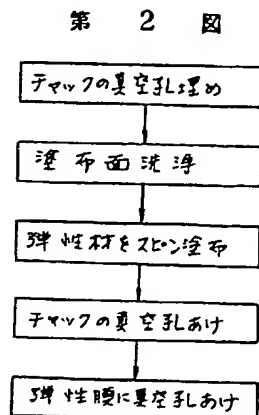 第 2 図
チャックの真空孔埋め
塗布面洗浄
弾性材をスピン塗布
チャックの真空孔あけ
弾性膜に真空孔あけ